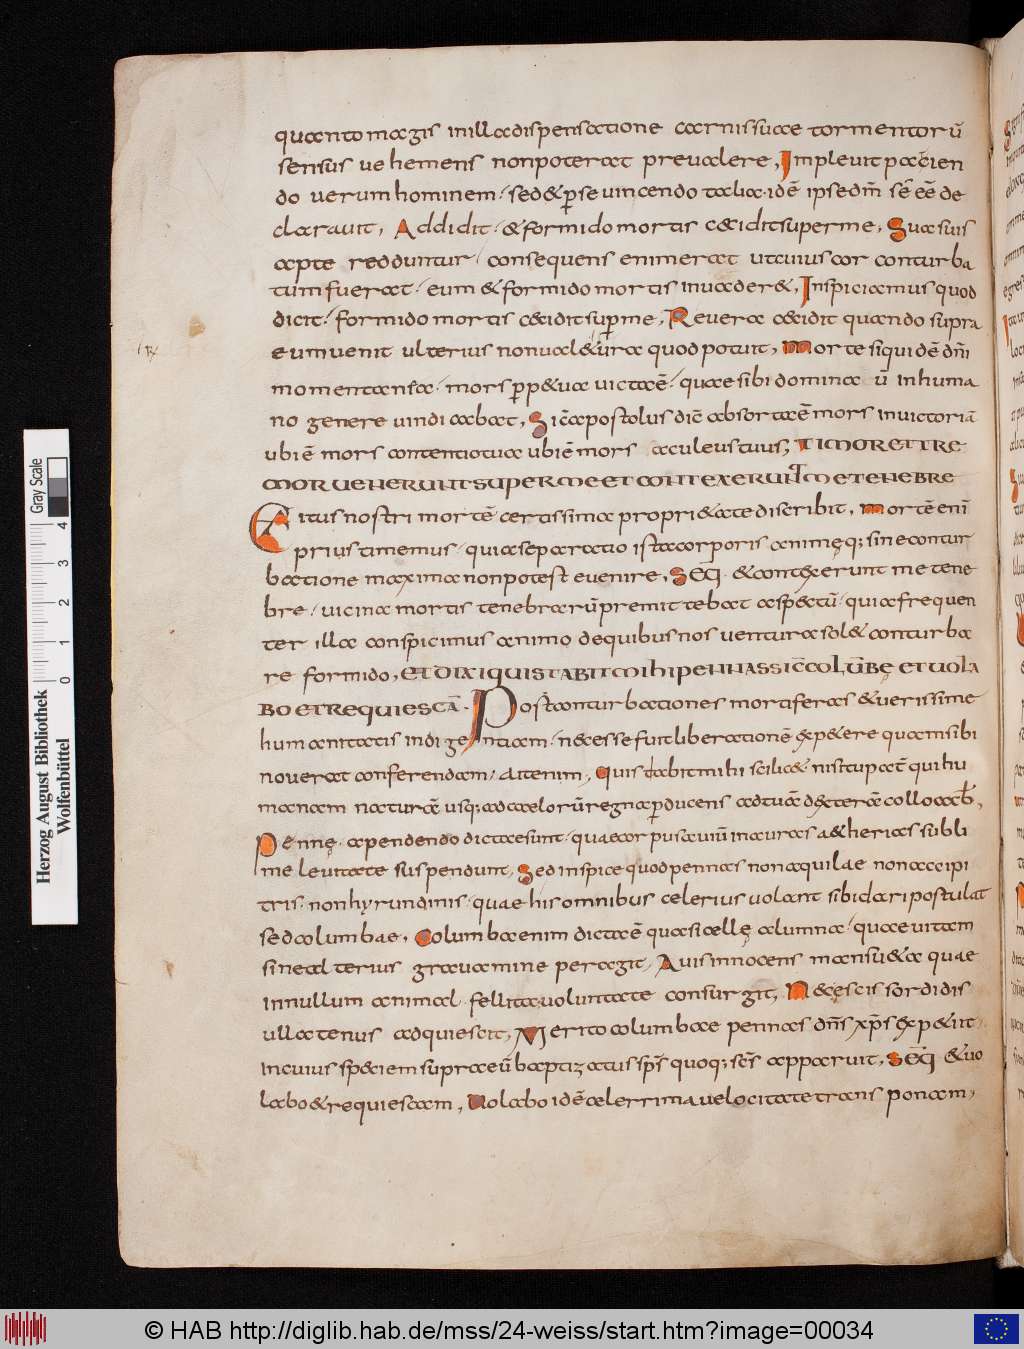 quanto magis in illa dispensatione carnis suae tormentorū
sensus vehemens non poterat prevalere, Implevit pacien
do verum hominem · sed & per se vincendo talia · idē ipse dm̄ sē eē de
claravit, Addidit · & formido mortis cecidit super me, Sua suis
apte redduntur · consequens enim erat ut cuius cor conturba
tum fuerat · eum & formido mortis invader&, Inspiciamus quod
dicit · formido mortis cecidit super me, Revera cecidit quando supra
eum venit ulterius non val&ura quod potuit, Morte siquidē dn̄i
momentanea · mors perp&ua victa ē · quae sibi domina ū in huma
no genere vindicabat, Sic apostolus dic̄ absorta ē mors in victoriā
ubi ē mors contentio tua ubi ē mors aculeus tuus, TIMOR ET TRE
MOR VENERUNT SUPER ME ET CONTEXERUNT ME TENEBRE
Citus nostri mortē certissima propri&ate discribit, Mortē enī
prius timemus · quia separatio ista corporis animęq; sine contur
batione maxima non potest evenire, Seq̄ · & contexerunt me tene
bre · vicina mortis tenebrarū premittebat aspectū · quia frequen
ter illa conspicimus animo de quibus nos ventura sol& conturba
re formido, ET DIXI QUIS DABIT MIHI PENNAS SIC COLŪBĘ ET VOLA
BO ET REQUIESCĀ ·
Post conturbationes mortiferas & verissime
humanitatis indigentiam · necesse fuit liberationē expetere quam sibi
noverat conferendam, Attenim, Quis dabit mihi scilic& · nisi tu pat̄ qui hu
manam naturā usq; ad caelorū regna perducens ad tuā dexterā collocab̄,
Pennę · a pendendo dictae sunt · quae corpus avium in auras aetherias subli
me levitate suspendunt, Sed inspice quod pennas non aquilae non accipi
tris · non hyrundinis · quae his omnibus celerius volant sibi dari postulat
sed columbae, Columba enim dicta ē quasi cellę alumna · quae vitam
sine alterius gravamine peragit, Avis innocens mansu&a quae
in nullum animal · fellita voluntate consurgit, N& escis sordidis
ullatenus adquiescit, Merito columbae pennas dn̄s xp̄s expetiit,
in cuius speciem supra eū baptizatus sp̄s quoq; sc̄s apparuit, Seq̄ & vo
labo & requiescam, Volabo idē celerrima velocitate transponam,
Herzog August Bibliothek
Wolfenbüttel
Gray Scale
0 1 2 3 4
© HAB http://diglib.hab.de/mss/24-weiss/start.htm?image=00034